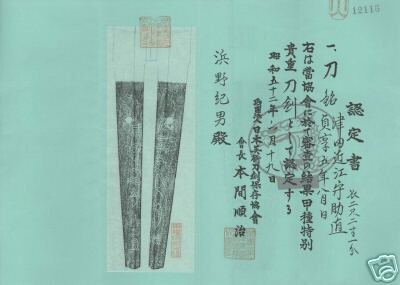 12116
認定書
一、刀 銘 津田近江守助直
貞享五年八月日
長二尺二寸一分
右は當協會に於て審査の結果甲種特別
貴重刀剣として認定する
昭和五十二年一月十九日
財團法人日本美術刀剣保存協會
會長 本間順治
浜野紀男殿
ebay